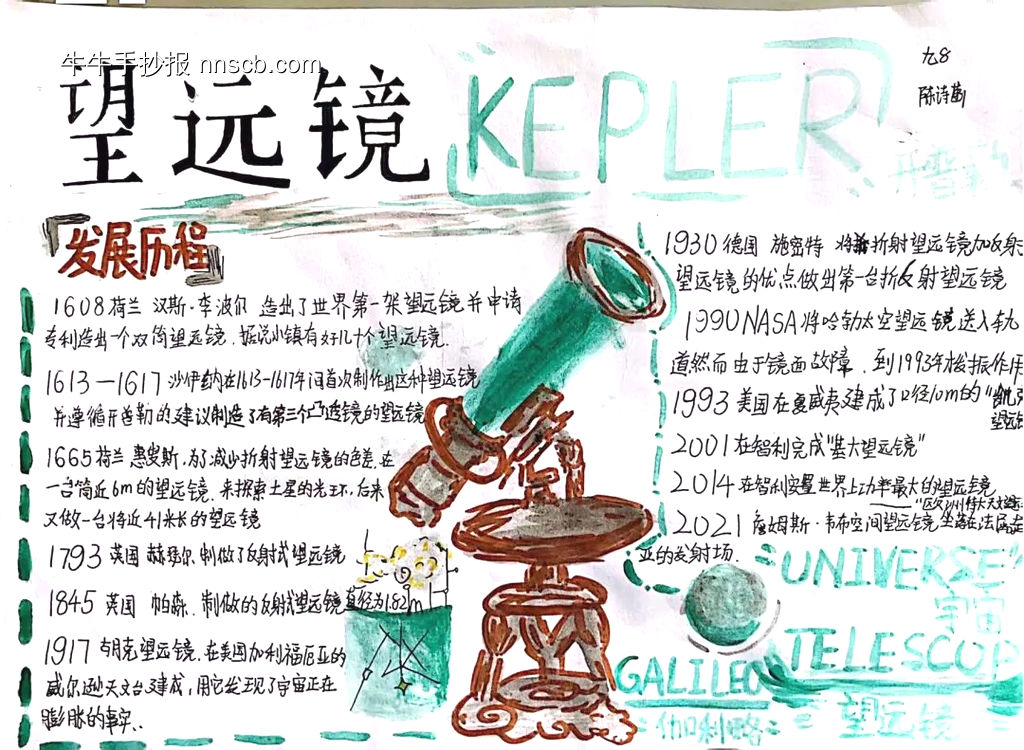 牛牛手抄报 nnscb.com
望远镜 KEPLER
九8
陈诗
开普勒
『发展历程』
1608荷兰 汉斯·李波尔 造出了世界第一架望远镜并申请
专利造出一个双筒望远镜.据说小镇有好几十个望远镜.
1613—1617 沙伊纳在1613-1617年间首次制作出这种望远镜
并遵循开普勒的建议制造了有第三个凸透镜的望远镜
1665荷兰 惠更斯.为了减少折射望远镜的色差.在
一台筒近6m的望远镜.来探索土星的光环.后来
又做一台将近41米长的望远镜
1793 英国 赫瑟尔.制做了反射式望远镜
1845 英国 帕森.制做的反射式望远镜直径为1.82m
1917 胡克望远镜.在美国加利福尼亚的
威尔逊天文台建成,用它发现了宇宙正在
膨胀的事实..
1930德国 施密特 将折射望远镜加反射
望远镜的优点做出第一台折反射望远镜
1990NASA将哈勃太空望远镜送入轨
道然而由于镜面故障.到1993年 振作用
1993 美国在夏威夷建成了口径10m的"凯克
望远镜
2001 在智利完成"甚大望远镜"
2014 在智利安置世界上功率最大的望远镜
"欧洲特大天文望远
2021 詹姆斯·韦布空间望远镜坐落在法属圭
亚的发射场.
"UNIVERSE"
宇宙
TELESCOP
GALILEO
=伽利略=
=望远镜=